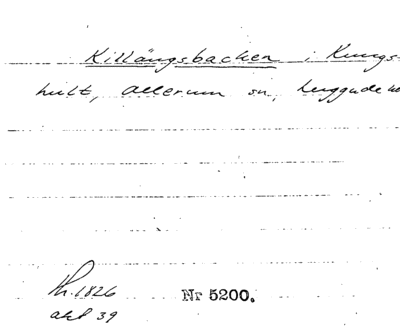 Killängsbacken i Kungs-
hult, Allerum sn, Luggude
Lh. 1826
akt 39
Nr 5200.